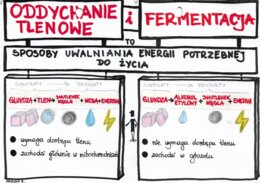 ODDYCHANIE TLENOWE i FERMENTACJA
TO
SPOSOBY UWALNIANIA ENERGII POTRZEBNEJ
DO ŻYCIA
SUBSTRATY PRODUKTY
GLUKOZA + TLEN → DWUTLENEK WĘGLA + WODA + ENERGIA
• wymaga dostępu tlenu
• zachodzi głównie w mitochondriach
SUBSTRATY PRODUKTY
GLUKOZA → ALKOHOL ETYLOWY + DWUTLENEK WĘGLA + ENERGIA
• nie wymaga dostępu tlenu
• zachodzi w cytozolu